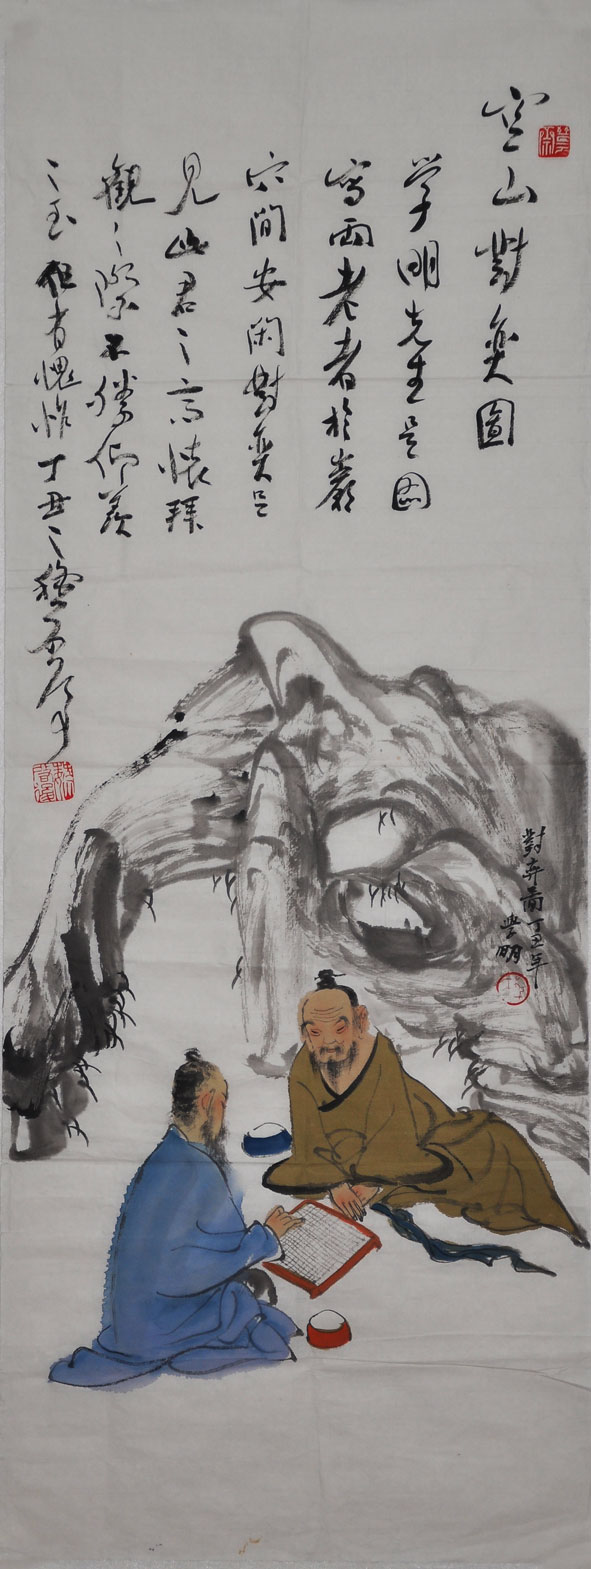 空山對奕圖
学明先生是図
寫兩老者於巖
穴間安闲對奕足
見此君之高懷拜
觀之際不勝仰羨
之至但有愧怍丁丑之
對弈圖丁丑年
學明